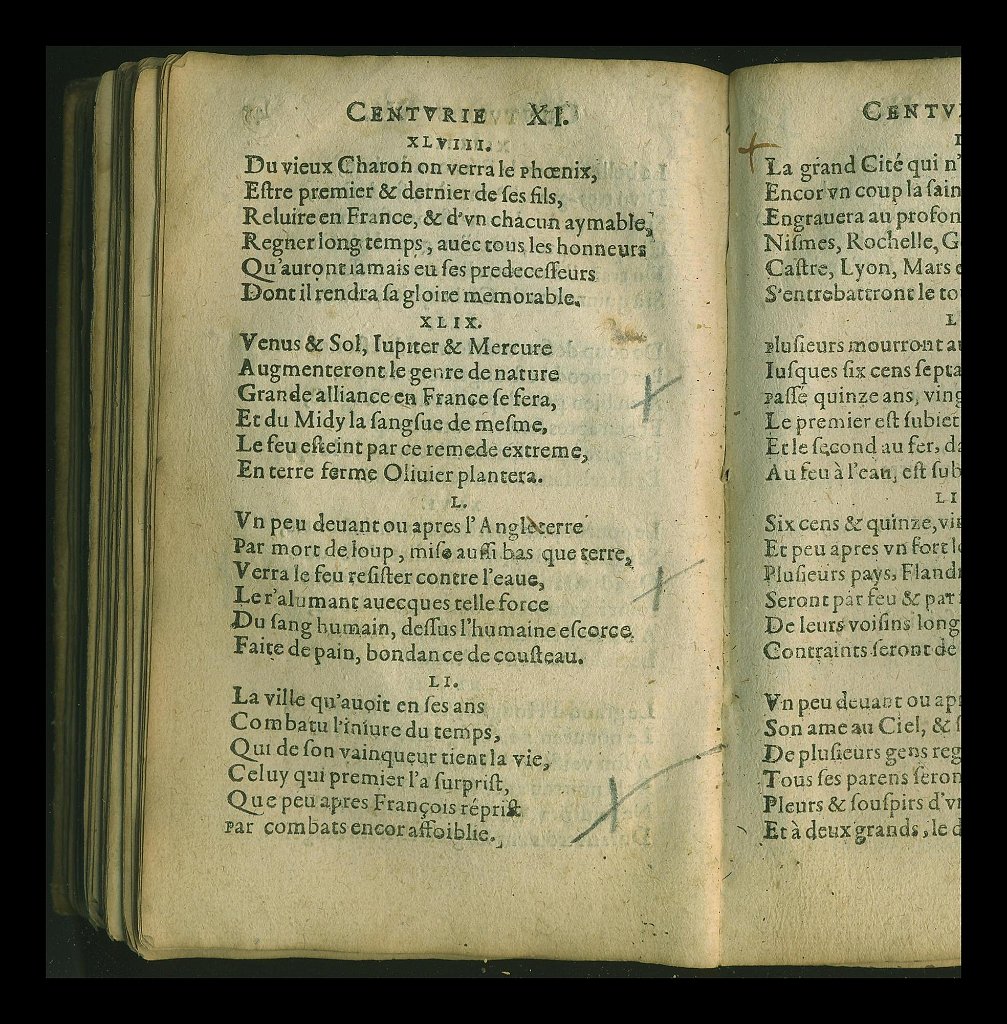 CENTVRIE XI.
XLVIII.
Du vieux Charon on verra le phœnix,
Eſtre premier & dernier de ſes fils,
Reluire en France, & d'vn chacun aymable,
Regner long temps, auec tous les honneurs
Qu'auront iamais eu ſes predeceſſeurs
Dont il rendra ſa gloire memorable.
XLIX.
Venus & Sol, Iupiter & Mercure
Augmenteront le genre de nature
Grande alliance en France ſe fera,
Et du Midy la ſangſue de meſme,
Le feu eſteint par ce remede extreme,
En terre ferme Oliuier plantera.
L.
Vn peu deuant ou apres l'Angleterre
Par mort de loup, miſe auſſi bas que terre,
Verra le feu reſiſter contre l'eaue,
Le r'alumant auecques telle force
Du ſang humain, deſſus l'humaine eſcorce
Faite de pain, bondance de couſteau.
LI.
La ville qu'auoit en ſes ans
Combatu l'iniure du temps,
Qui de ſon vainqueur tient la vie,
Celuy qui premier l'a ſurpriſt,
Que peu apres François répriſt
Par combats encor affoiblie.
CENTV
L
La grand Cité qui n'
Encor vn coup la ſain
Engrauera au profon
Niſmes, Rochelle, G
Caſtre, Lyon, Mars
S'entrebattront le to
L
Pluſieurs mourront a
Iuſques ſix cens ſepta
Paſſé quinze ans, ving
Le premier eſt ſubiet
Et le ſecond au fer, da
Au feu à l'eau, eſt ſub
LI
Six cens & quinze, vi
Et peu apres vn fort l
Pluſieurs pays, Fland
Seront par feu & par
De leurs voiſins long
Contraints ſeront de
Vn peu deuant ou ap
Son ame au Ciel, & ſ
De pluſieurs gens reg
Tous ſes parens ſeron
Pleurs & ſouſpirs d'v
Et à deux grands, le d